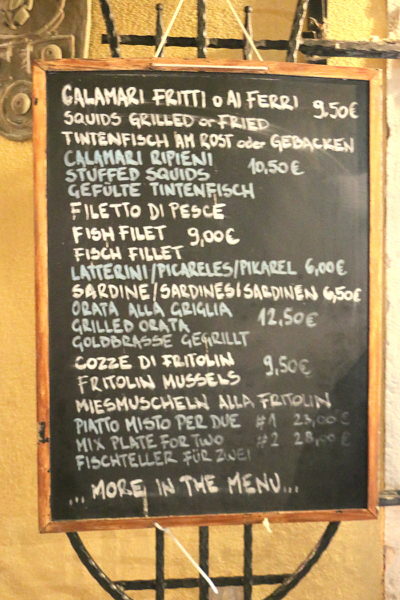 CALAMARI FRITTI o AI FERRI 9,50€
SQUIDS GRILLED or FRIED
TINTENFISCH AM ROST oder GEBACKEN
CALAMARI RIPIENI
STUFFED SQUIDS 10,50€
GEFÜLTE TINTENFISCH
FILETTO DI PESCE
FISH FILET 9,00€
FISCH FILLET
LATTERINI/PICARELES/PIKAREL 6,00€
SARDINE/SARDINES/SARDINEN 6,50€
ORATA ALLA GRIGLIA
GRILLED ORATA 12,50€
GOLDBRASSE GEGRILLT
COZZE DI FRITOLIN 9,50€
FRITOLIN MUSSELS
MIESMUSCHELN ALLA FRITOLIN
PIATTO MISTO PER DUE #1 23,00€
MIX PLATE FOR TWO #2 28,00€
FISCHTELLER FÜR ZWEI
... MORE IN THE MENU...